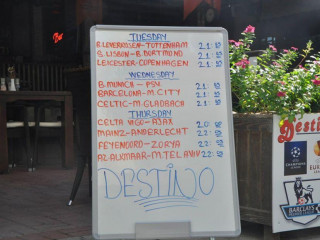 TUESDAY
B. LEVERKUSEN-TOTTENHAM 21:45
S. LISBON-B. DORTMOND 21:45
LEICESTER-COPENHAGEN 21:45
WEDNESDAY
B. MUNICH - PSV 21:45
BARCELONA-M. CITY 21:45
CELTIC-M. GLADBACH 21:45
THURSDAY
CELTA VIGO-AJAX 20:00
MAINZ-ANDERLECHT 22:05
FEYENOORD-ZORYA 22:05
AZ ALKMAAR-M. TEL AVIV 22:05
DESTINO
Desti
BARCLAYS